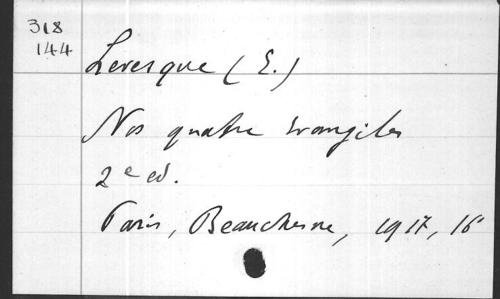 318
144
Levesque (E.)
Nos quatre Evangiles
2e ed.
Paris, Beauchesne, 1917, 16°